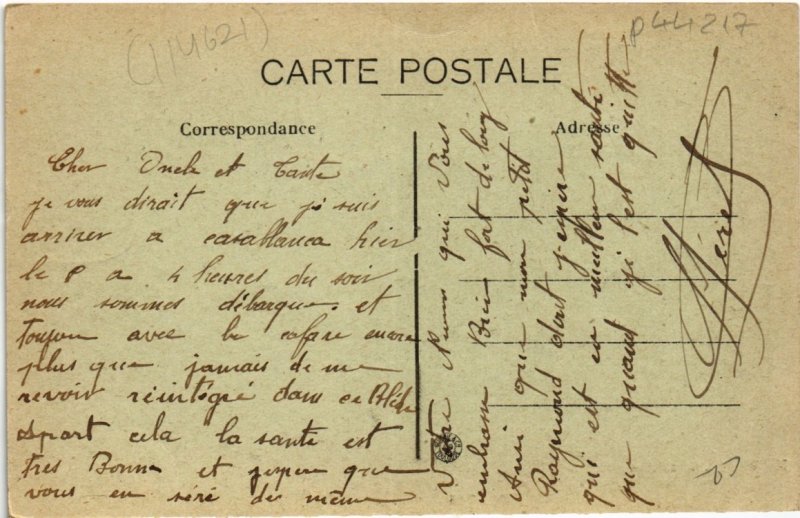 (114621)
p44217
CARTE POSTALE
Correspondance
Adresse
Cher Oncle et Tante
je vous dirait que je suis
arriver a casablanca hier
le 8 a 4 heures du soir
nous sommes débarque et
toujour avec le cafare encore
plus que jamais de me
revoir réintégré dans ce Bled
apart cela la sante est
tres Bonne et j'espere que
vous en sere de même
Votre qui Vous
embrasse Bien fort de loin
Ainsi que mon petit
Raymond dont j'espere
qui est en meilleur sante
que quand je l'est quitte